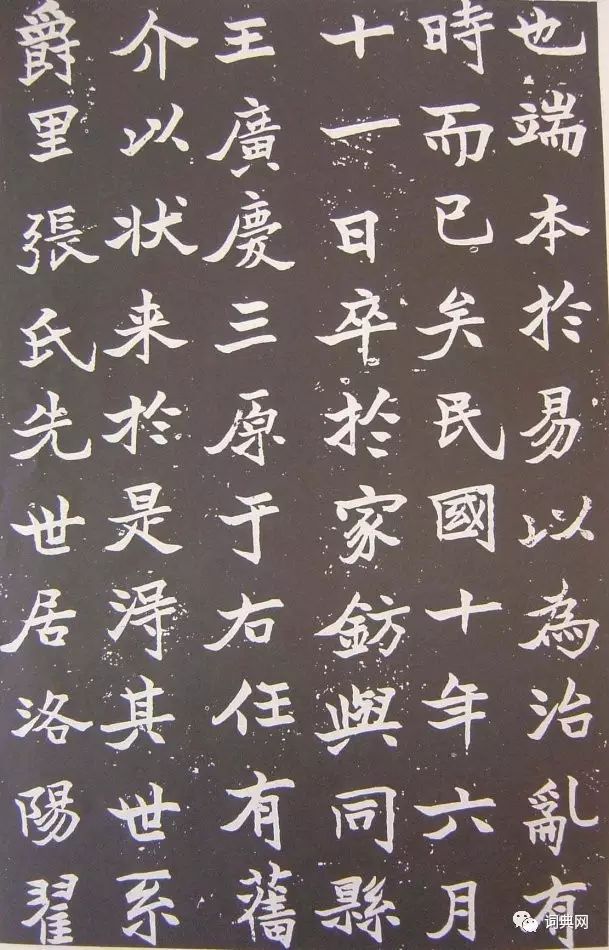 也端本於易以為治亂有
時而已矣民國十年六月
十一日卒於家鈁與同縣
王廣慶三原于右任有舊
介以状来於是淂其世系
爵里張氏先世居洛陽翟
词典网